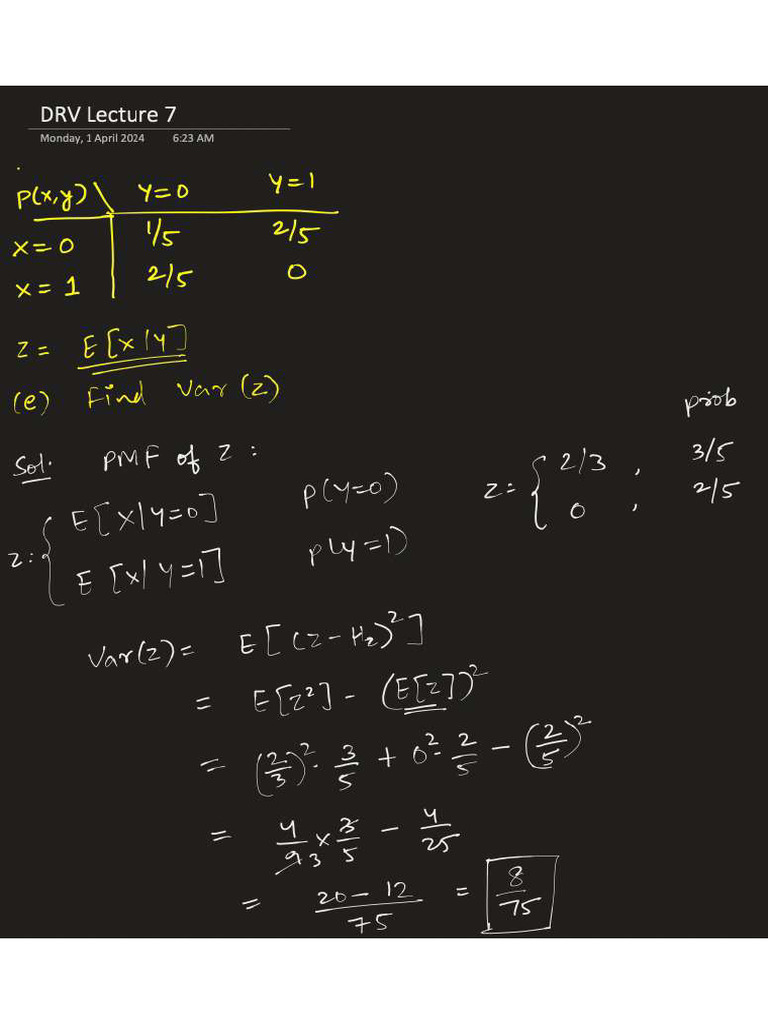 DRV Lecture 7
Monday, 1 April 2024 6:23 AM
P(x,y) \ Y=0 Y=1
X=0 1/5 2/5
X=1 2/5 0
Z = E[X|Y]
(e) Find Var(Z)
Sol: PMF of Z:
Z: { E[X|Y=0] P(Y=0)
E[X|Y=1] P(Y=1)
prob
Z = { 2/3 , 3/5
0 , 2/5
Var(Z) = E[(Z-μz)²]
= E[Z²] - (E[Z])²
= (2/3)² · 3/5 + 0² · 2/5 - (2/5)²
= 4/9 3 × 3/5 - 4/25
= 20-12/75 = 8/75